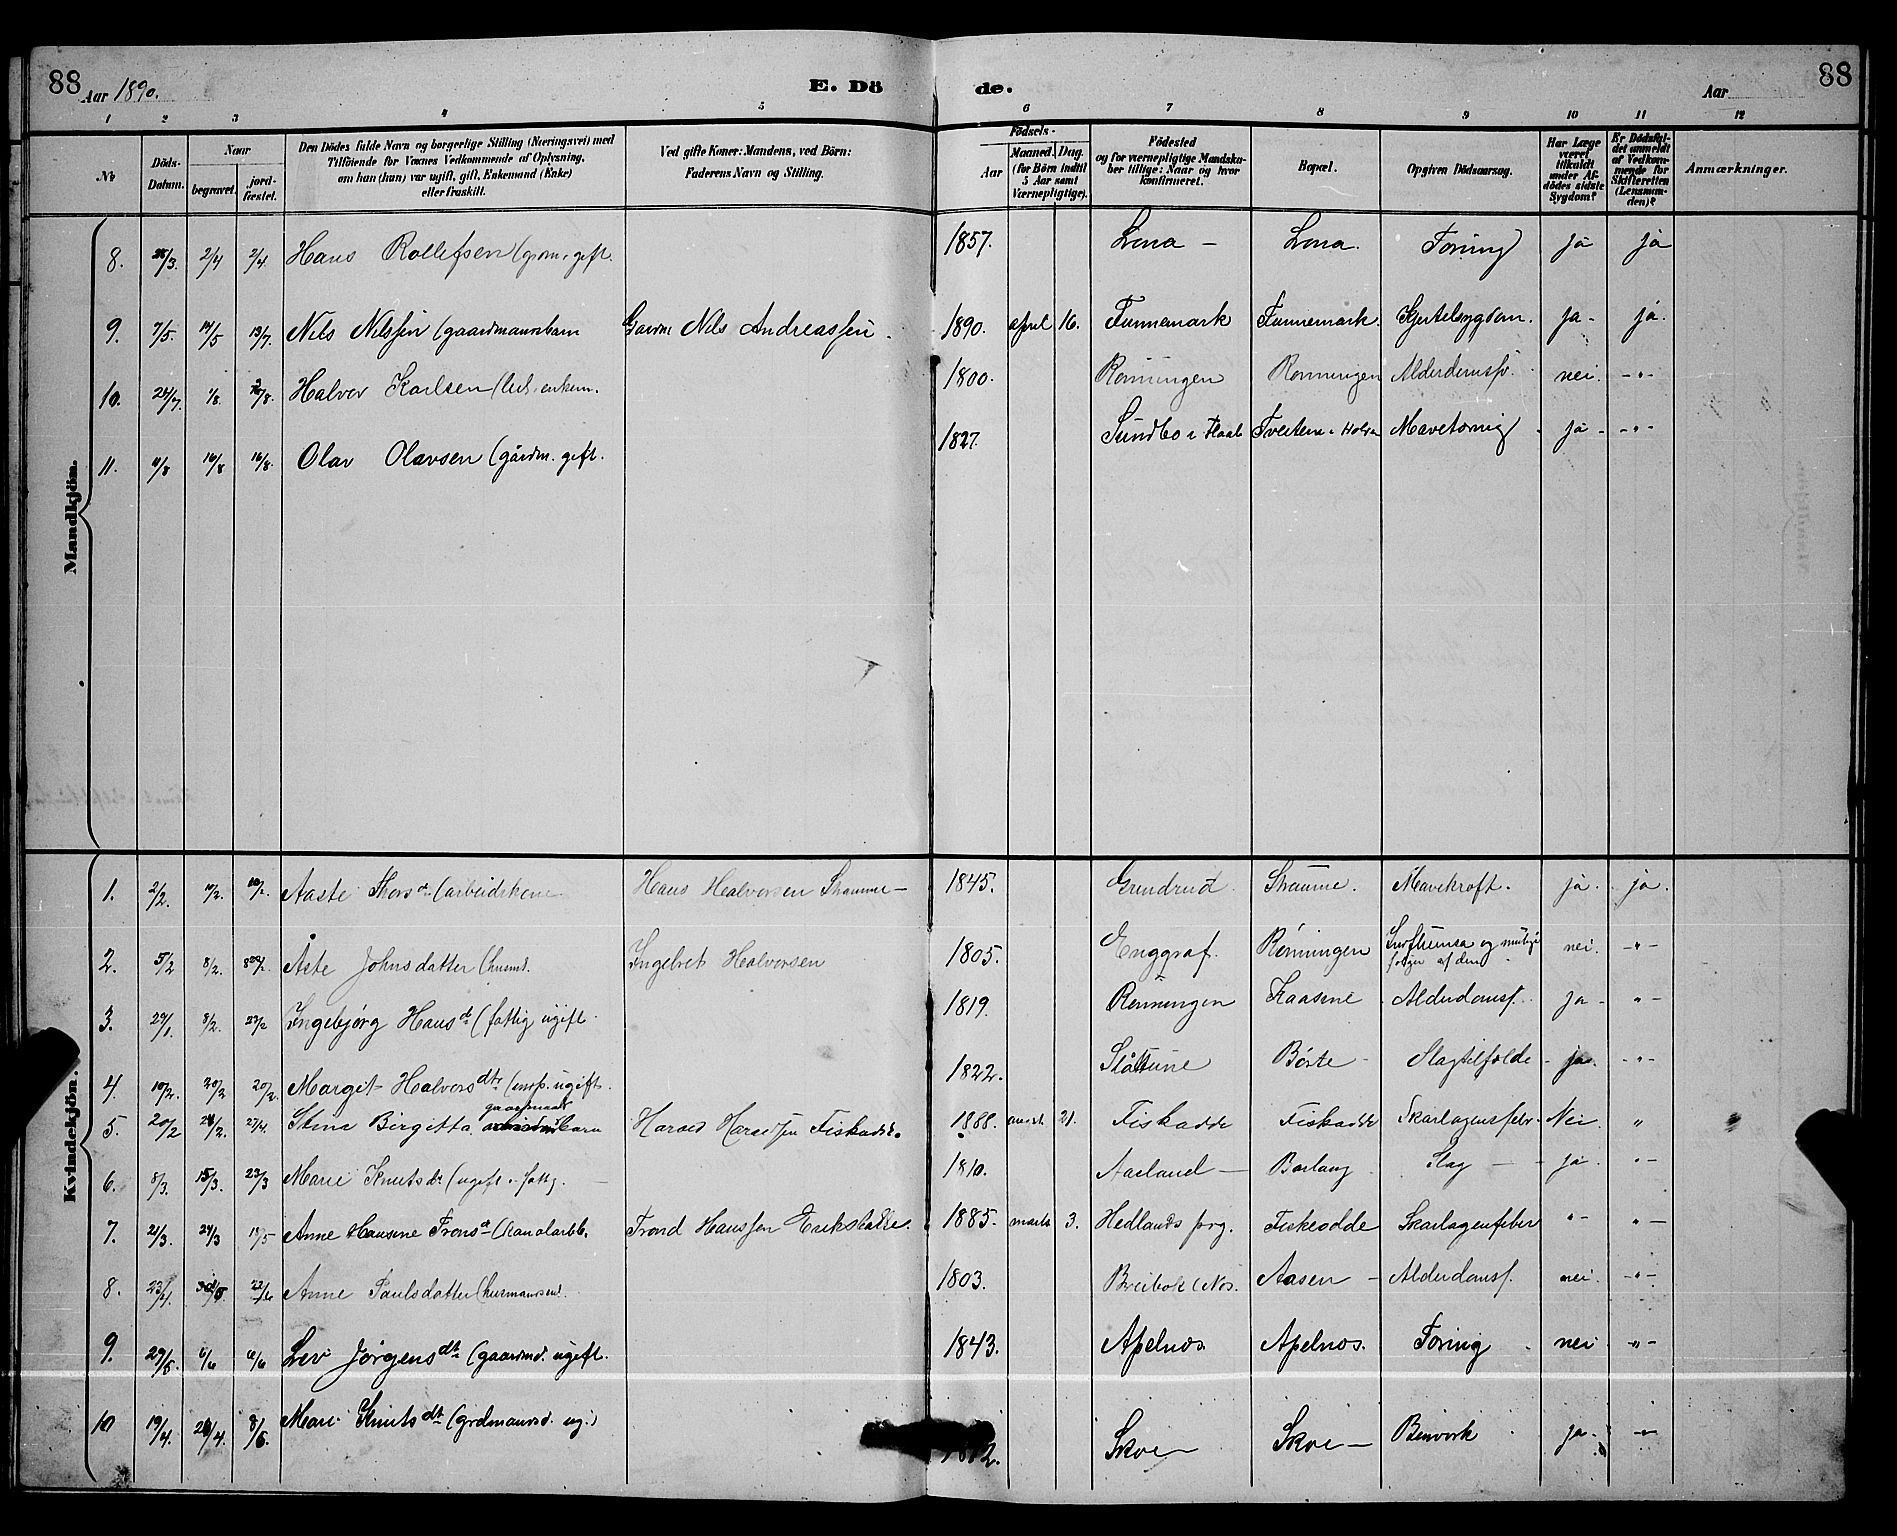 88 Aar 1890. E. Dö de. Aar 88
1 2 3 4 5 6 7 8 9 10 11 12
No
Döds-Datum.
Naar
begravet.
jord-fæstet.
Den Dödes fulde Navn og borgerlige Stilling (Næringsvei) med
Tilföiende for Voxnes Vedkommende af Oplysning,
om han (hun) var ugift, gift, Enkemand (Enke)
eller fraskilt.
Ved gifte Koner: Mandens, ved Börn:
Faderens Navn og Stilling.
Födsels-
Aar
Maaned. Dag.
(for Börn indtil
5 Aar samt
Værnepligtige).
Födested
og for værnepligtige Mandska-
ber tillige: Naar og hvor
konfirmeret.
Bopæl.
Opgiven Dödsaarsag.
Har Læge
været
tilkaldt
under Af-
dödes sidste
Sygdom?
Er Dödsfal-
det anmeldt
af Vedkom-
mende for
Skifteretten
(Lensman-
den)?
Anmærkninger.
Mandkjön.
8. /3. 2/4 2/4. Hans Rollefsen (grdm. gift. 1857. Lona – Lona. Tæring ja ja
9. 7/5. 14/5 13/7. Nils Nilssen (gaardmannsbarn Gaardm Nils Andreassen. 1890. april 16. Funnemark Funnemark. Kjertelsygdom. ja - ja.
10. 26/7. 1/8. /8. Halvor Karlsen (led. enkem. 1800. Rönningen Rönningen Alderdomssv. nei. - " -
11. 11/8 16/8 16/8. Olav Olavsen (gårdm. gift. 1827. Sundbo i Flaab Tveitene i Holla Mavetæring ja - - " -
Kvindekjön.
1. 2/2. 11/2. 10/2. Aaste Thorsd. (arbeidskone Hans Halvorsen Straume – 1845. Grindrud. Straume. Mavekræft. ja. ja.
2. 5/2 8/2. /2. Åste Johnsdatter (husmd. Ingebret Halvorsen 1805. Enggraf. Rönningen Influensa og mulige
følger af den nei. - " -
3. 29/1. 8/2. 23/2 Ingebjørg Hansd. (fattig ugift. 1819. Rønningen Kaasene Alderdomsf. ja - - " -
4. 10/2. 20/2 20/2. Marget Halvorsdtr (insp. ugift. 1822. Slåttune Børte - Slagtilfælde - ja. - " -
5. 20/2 28/2. 27/4. Stina Birgitta gaardmands barn Harald Haraldsen Fiskodde. 1888. 21. Fiskodde Fiskodde Skarlagensfeber Nei "
6. 8/3. 15/3. 23/3 Marie Knutsdtr (ugift. fattig. 1810. Aarland – Borlaug Slag – ja. " -
7. 21/3. 29/3 15/5 Anne Hansine Tronsd. (Kanalarbb. Trond Hanssen Eriksbakke. 1885. marts 3. Hedlands prg. Fiskeodde Skarlagenfeber " - " -
8. 23/4. /5 23/6 Anne Paulsdatter (husmandsenk. 1803. Breibak (Nos. Aasen – Alderdomsf. nei. - " -
9. 29/5. 6/6 6/6 Liv Jörgensdtr (gaardmd. ugift. 1843. Apelnos Apelnos. Tæring nei - " -
10 19/4. 26/4. 8/6. Mari Knutsdtr (grdmannsd. ug.) Skoe Skoe – Benverk ja. - " -